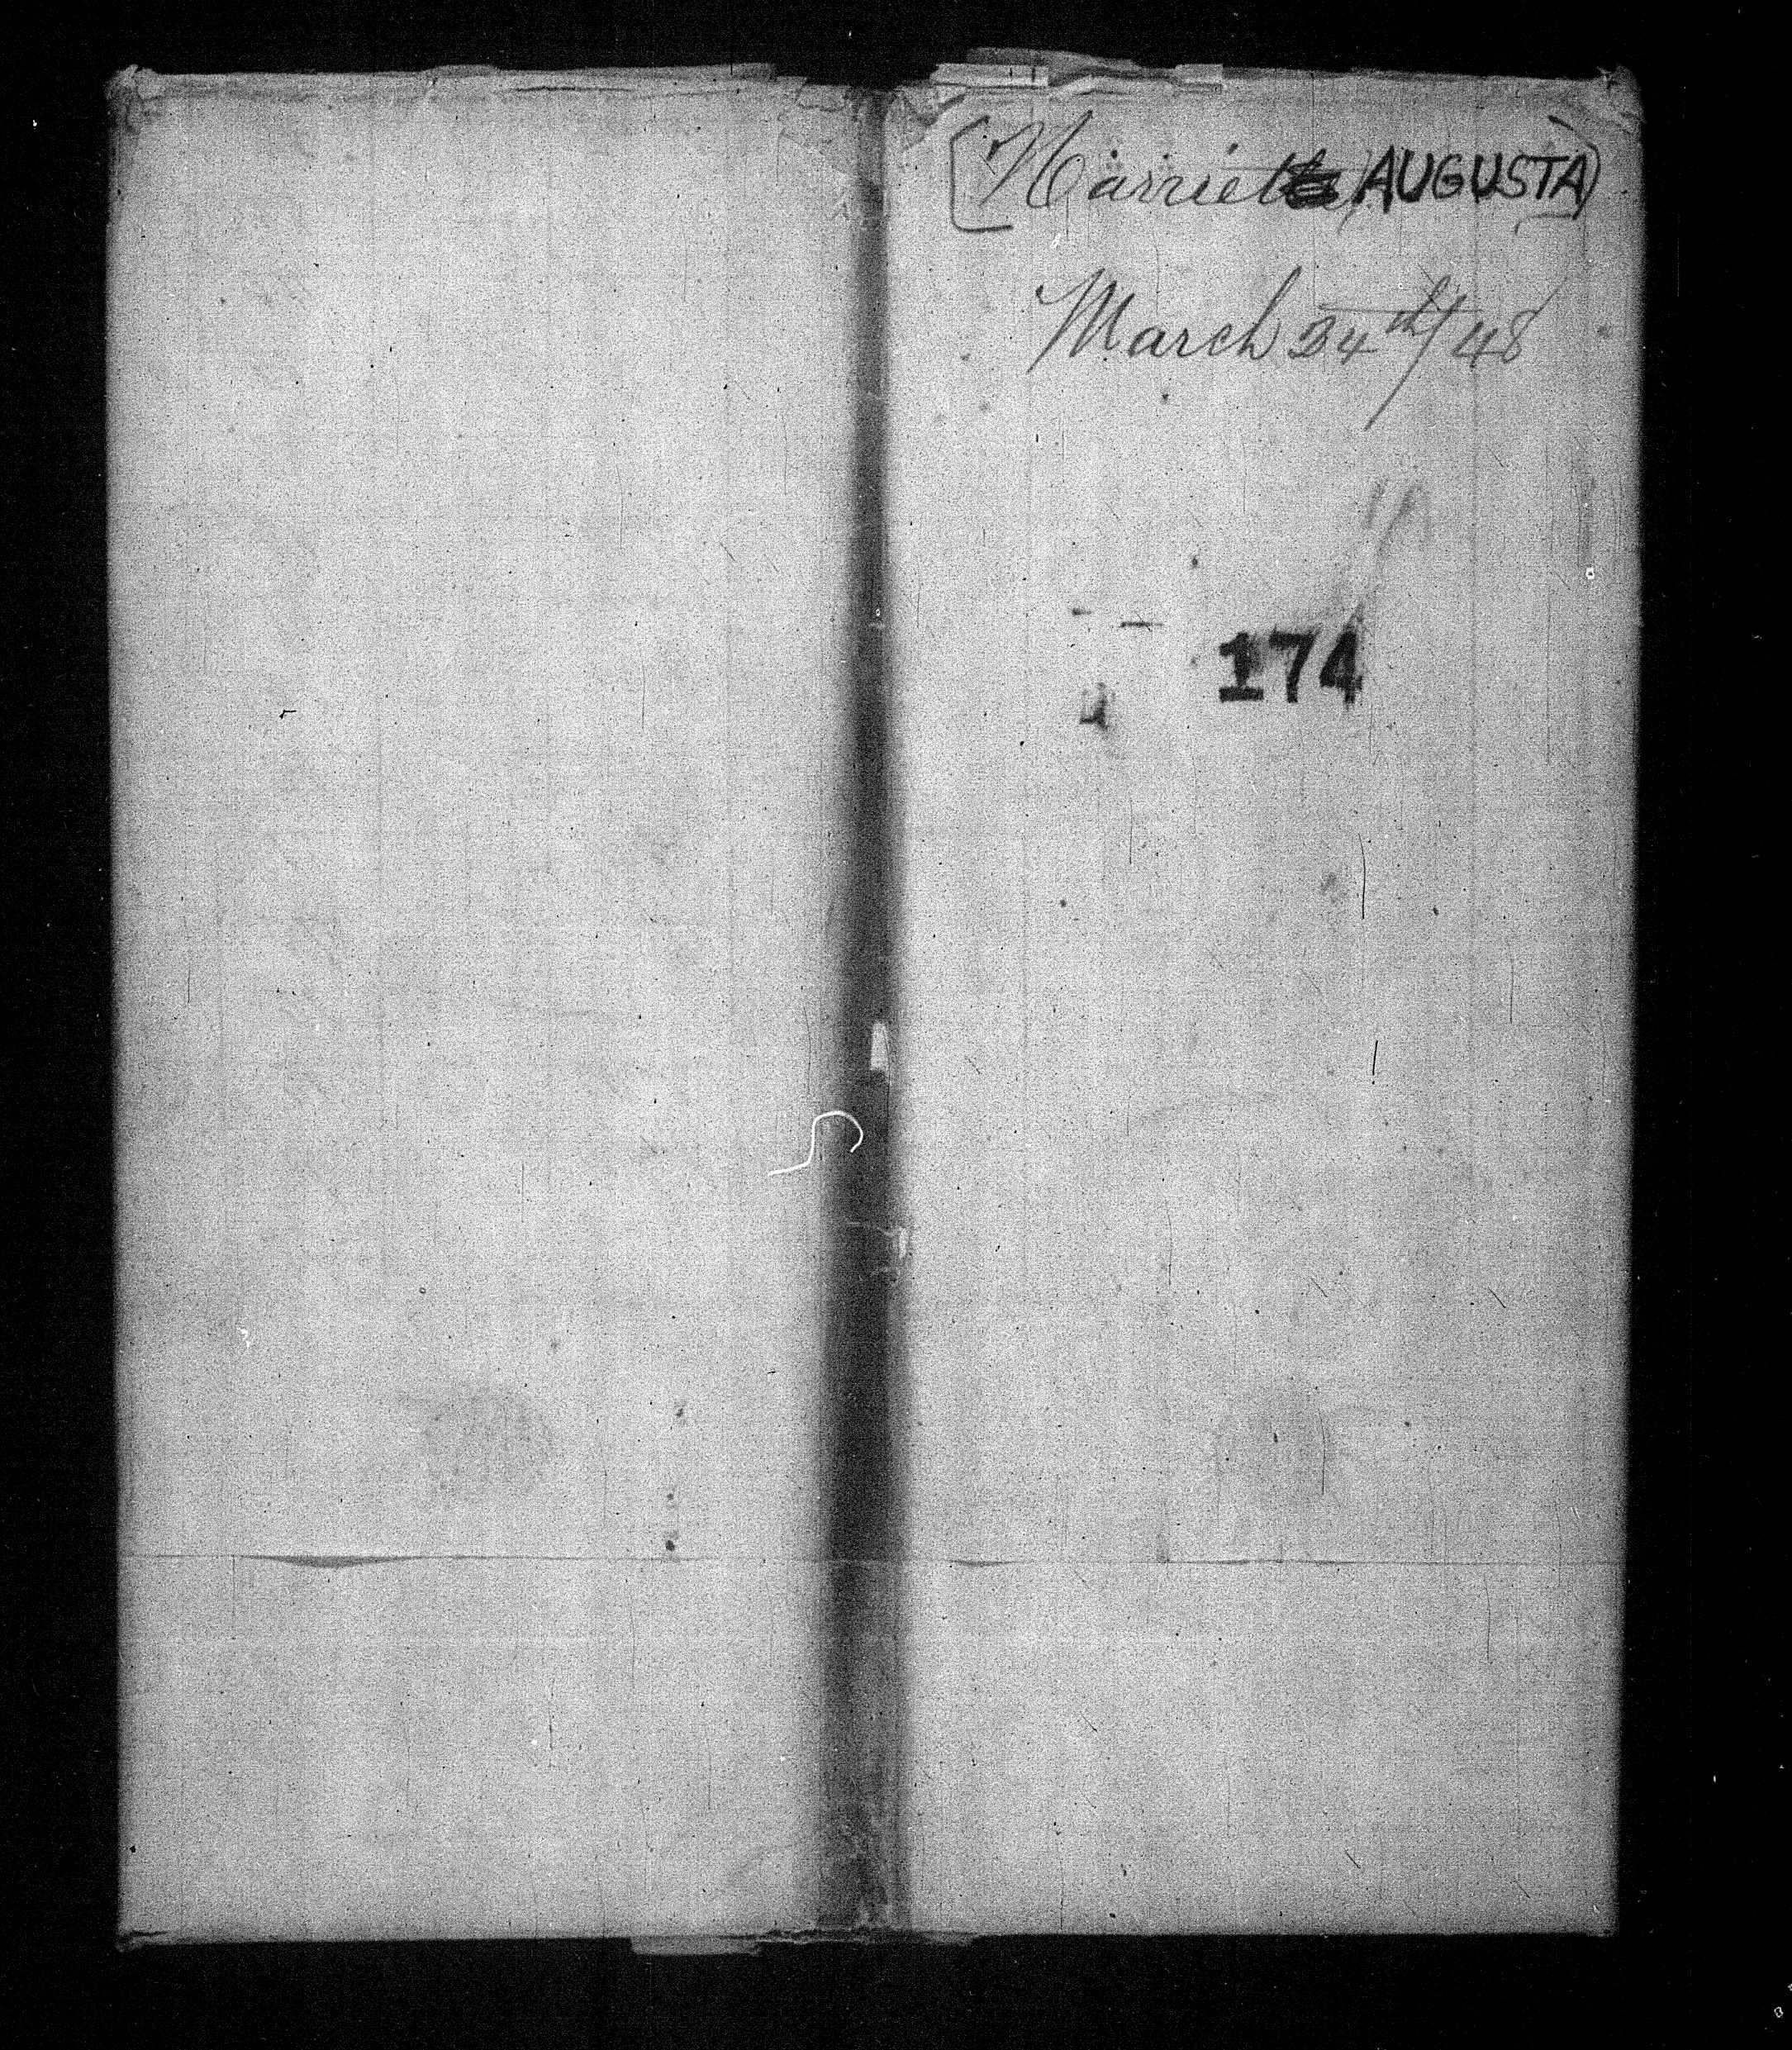 (Harriet AUGUSTA)
March 24th/48
174